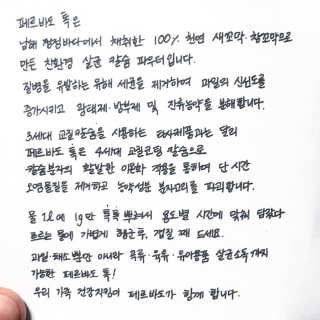 페르바도 톡은
남해 청정바다에서 채취한 100% 천연 새꼬막·참꼬막으로
만든 친환경 살균 칼슘 파우더입니다.
질병을 유발하는 유해 세균을 제거하여 과일의 신선도를
증가시키고 광택제·방부제 및 잔류농약을 분해합니다.
3세대 교질칼슘을 사용하는 타사제품과는 달리
페르바도 톡은 4세대 교질코팅 칼슘으로
칼슘분자의 활발한 이온화 작용을 통하여 단 시간
오염물질을 제거하고 농약성분 분자고리를 파괴합니다.
물 1L에 1g만 톡톡 뿌려서 용도별 시간에 맞춰 담궜다
흐르는 물에 가볍게 헹군후, 껍질 째 드세요.
과일·채소 뿐만 아니라 곡류·육류·유아용품 살균소독까지
가능한 페르바도 톡!
우리 가족 건강지킴이 페르바도가 함께 합니다.